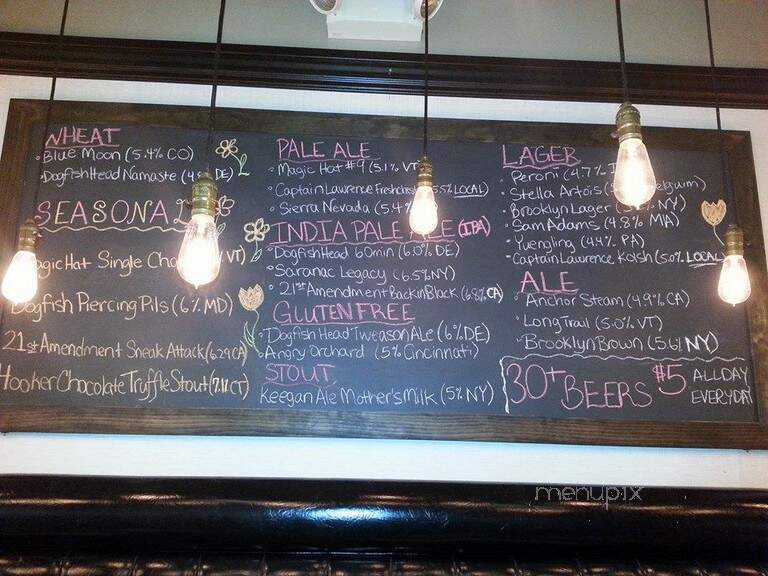 WHEAT
Blue Moon (5.4% CO)
Dogfish Head Namaste DE)
SEASONAL
Magic Hat Single VT)
Dogfish Piercing Pils (6% MD)
21st Amendment Sneak Attack (6.2% CA)
Hooker Chocolate Truffle Stout CT)
PALE ALE
Magic Hat #9 (5.1% VT
Captain Lawrence Freshchester 5.5% LOCAL)
Sierra Nevada (5.4%
INDIA PALE ALE (IPA)
Dogfish Head 60 min (6.0% DE)
Saranac Legacy (6.5% NY)
21st Amendment Back in Black (6.8% CA)
GLUTEN FREE
Dogfish Head Tweason Ale (6% DE)
Angry Orchard (5% Cincinnati)
STOUT
Keegan Ale Mother's Milk (5% NY)
LAGER
Peroni (4.7%
Stella Artois Belgium)
Brooklyn Lager NY)
Sam Adams (4.8% MA)
Yuengling (4.4% PA)
Captain Lawrence Kolsh (5.0% LOCAL
ALE
Anchor Steam (4.9% CA)
Long Trail (5.0% VT)
Brooklyn Brown (5.6% NY)
30+ BEERS $5 ALL DAY
EVERYDAY
menupix